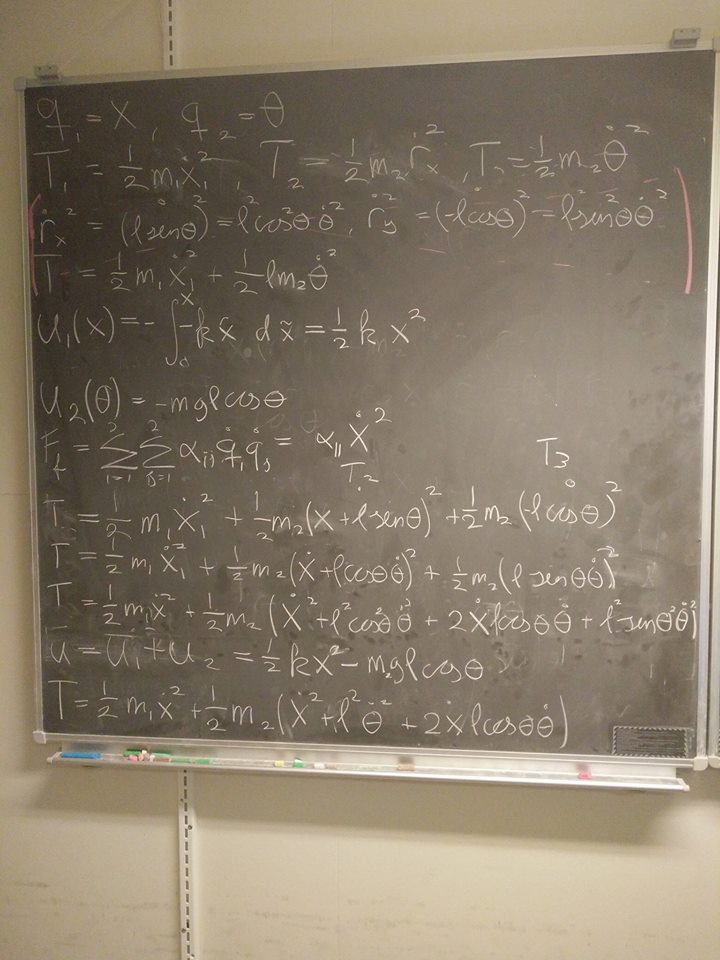 q₁ = x, q₂ = θ
T₁ = ½ m₁ẋ₁², T₂ = ½ m₂ ṙₓ², T₃ = ½ m₂ θ̇²
ṙₓ² = (l senθ)̇² = l² cos²θ θ̇², ṙ_y² = (-l cosθ)̇² = l² sin²θ θ̇²
T = ½ m₁ ẋ₁² + ½ l m₂ θ̇²
U₁(x) = - ∫₀ˣ -k x̃ dx̃ = ½ k x²
U₂(θ) = -mgl cosθ
F_f = Σᵢ₌₁² Σⱼ₌₁² αᵢⱼ q̇ᵢ q̇ⱼ = α₁₁ ẋ²
T₂ T₃
T = ½ m₁ ẋ₁² + ½ m₂ (x + l senθ)̇² + ½ m₂ (-l cosθ)̇²
T = ½ m₁ ẋ₁² + ½ m₂ (ẋ + l cosθ θ̇)² + ½ m₂ (l senθ θ̇)²
T = ½ m₁ ẋ² + ½ m₂ (ẋ² + l² cos²θ θ̇² + 2ẋ l cosθ θ̇ + l² sen²θ θ̇²)
U = U₁ + U₂ = ½ kx² - m₂gl cosθ
T = ½ m₁ ẋ² + ½ m₂ (ẋ² + l² θ̇² + 2ẋ l cosθ θ̇)